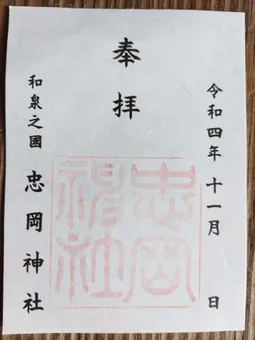 奉拝
令和四年十一月 日
和泉之國 忠岡神社
忠岡
神社